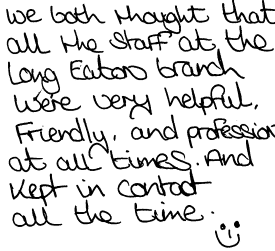 we both thought that
all the staff at the
Long Eaton branch
were very helpful,
Friendly, and profession
at all times. And
kept in contact
all the time.